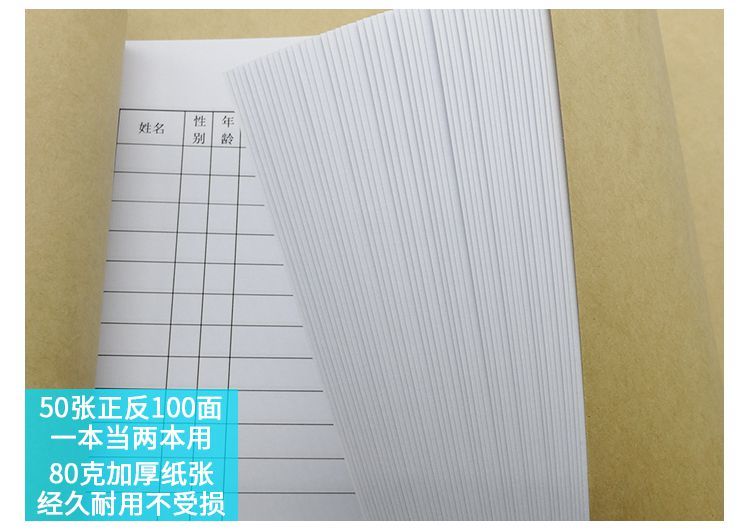 姓名
性别
年龄
50张正反100面
一本当两本用
80克加厚纸张
经久耐用不受损